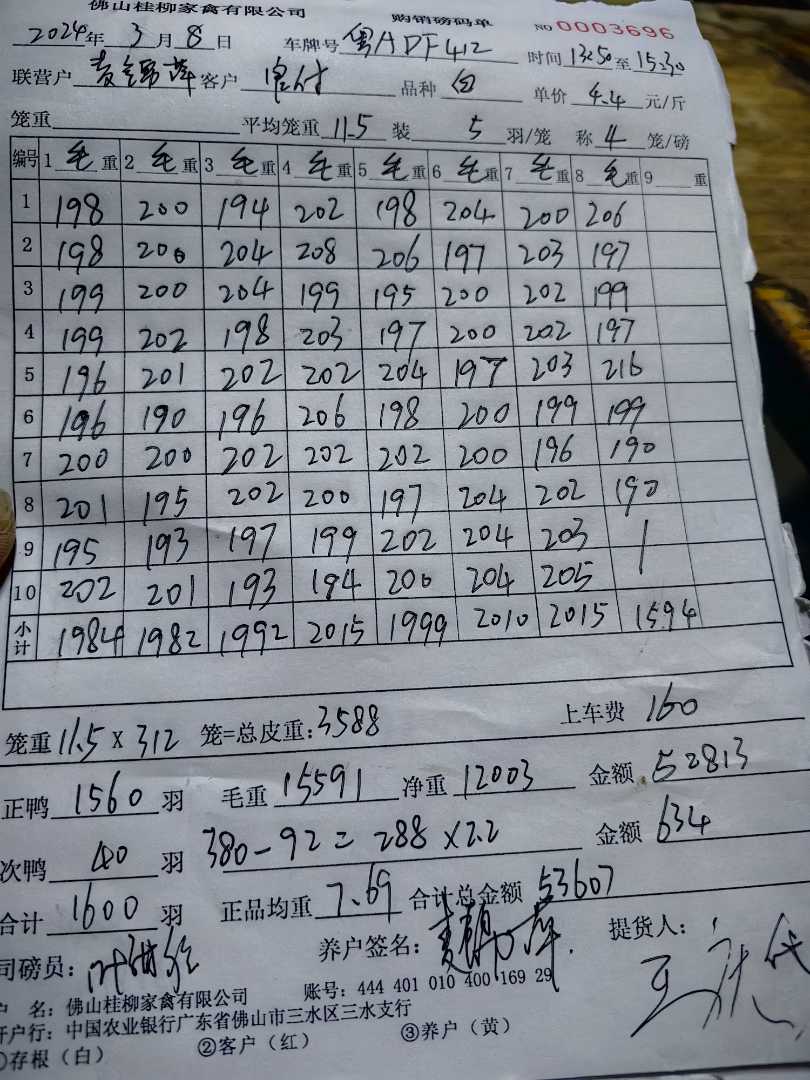 佛山桂柳家禽有限公司 购销磅码单 NO 0003696
2024年 3月 8日 车牌号 粤ADF412 时间 13:50 至 15:30
联营户 客户 品种 白 单价 4.4 元/斤
笼重 平均笼重 11.5 装 5 羽/笼 称 4 笼/磅
编号 1 毛 重 2 毛 重 3 毛 重 4 毛 重 5 毛 重 6 毛 重 7 毛 重 8 毛 重 9 重
1 198 200 194 202 198 204 200 206
2 198 200 204 208 206 197 203 197
3 199 200 204 199 195 200 202 199
4 199 202 198 203 197 200 202 197
5 196 201 202 202 204 197 203 216
6 196 190 196 206 198 200 199 199
7 200 200 202 202 202 200 196 190
8 201 195 202 200 197 204 202 190
9 195 193 197 199 202 204 203
10 202 201 193 194 200 204 205
小计 1984 1982 1992 2015 1999 2010 2015 1594
笼重 11.5 x 312 笼=总皮重: 3588 上车费 160
正鸭 1560 羽 毛重 15591 净重 12003 金额 52813
次鸭 40 羽 380-92=288×2.2 金额 634
合计 1600 羽 正品均重 7.69 合计总金额 53607
司磅员: 养户签名: 提货人:
户 名: 佛山桂柳家禽有限公司 账号: 444 401 010 400 169 29
开户行: 中国农业银行广东省佛山市三水区三水支行
①存根（白） ②客户（红） ③养户（黄）